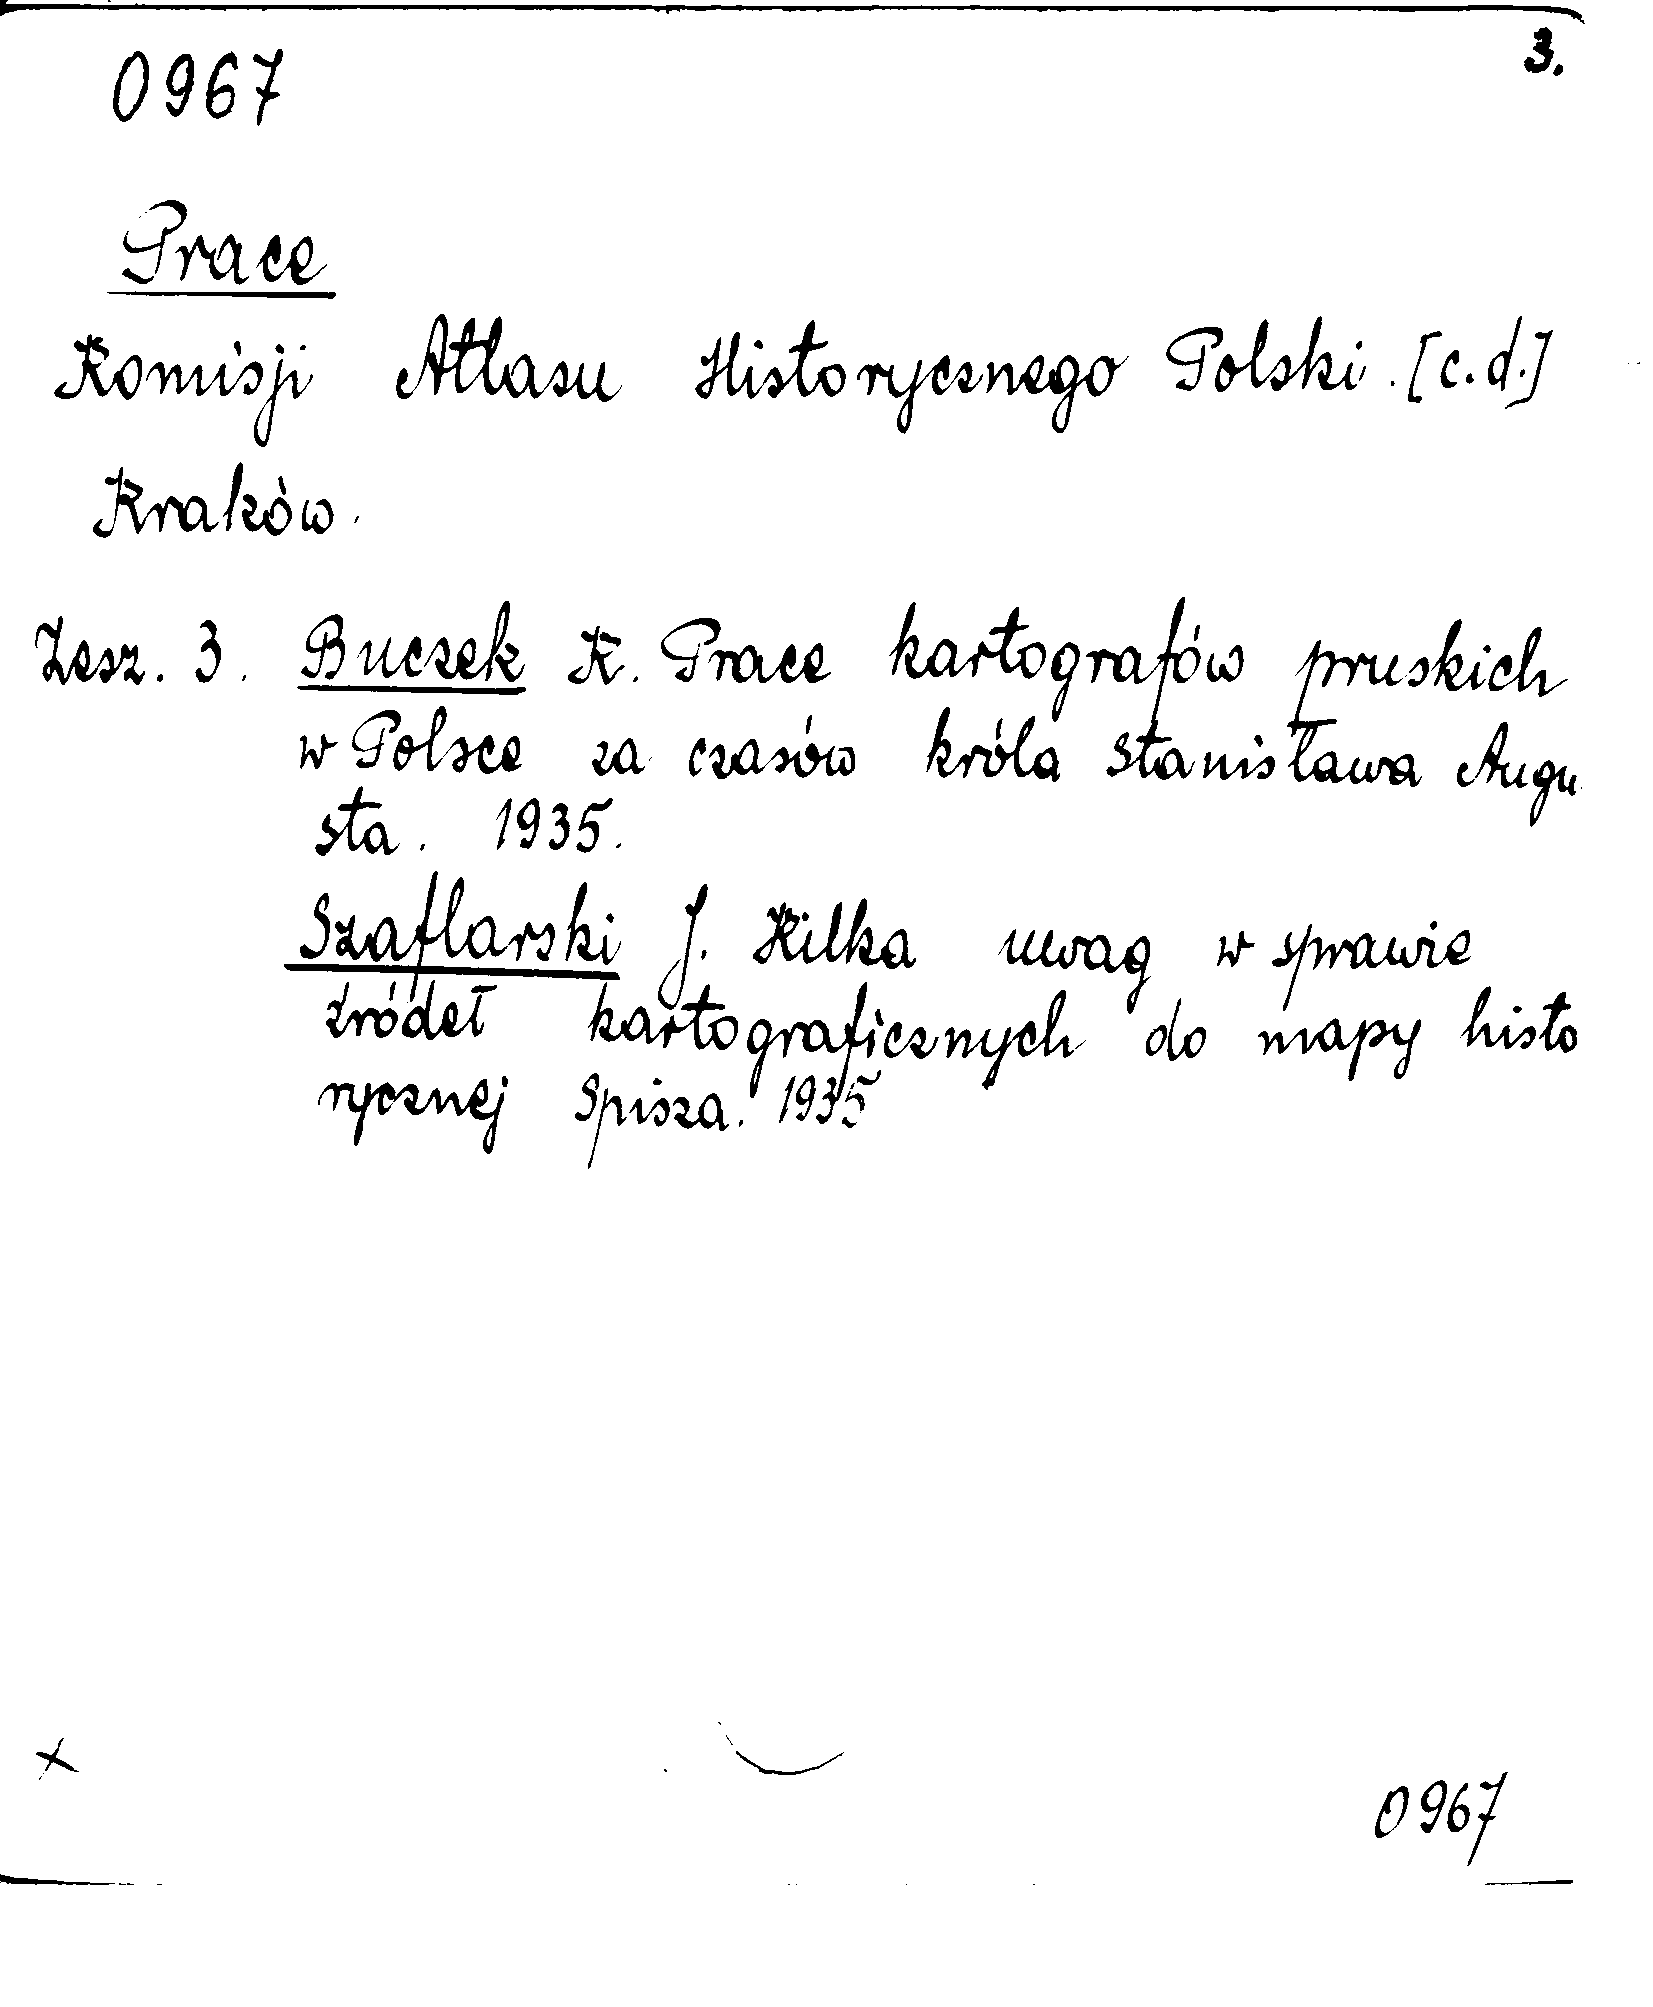 3.
0967
Prace
Komisji Atlasu Historycznego Polski. [c.d.]
Kraków.
Zesz. 3. Buczek K. Prace kartografów pruskich
w Polsce za czasów króla Stanisława Augu
sta. 1935.
Szaflarski J. Kilka uwag w sprawie
źródeł kartograficznych do mapy histo
rycznej Spisza. 1935
x
0967